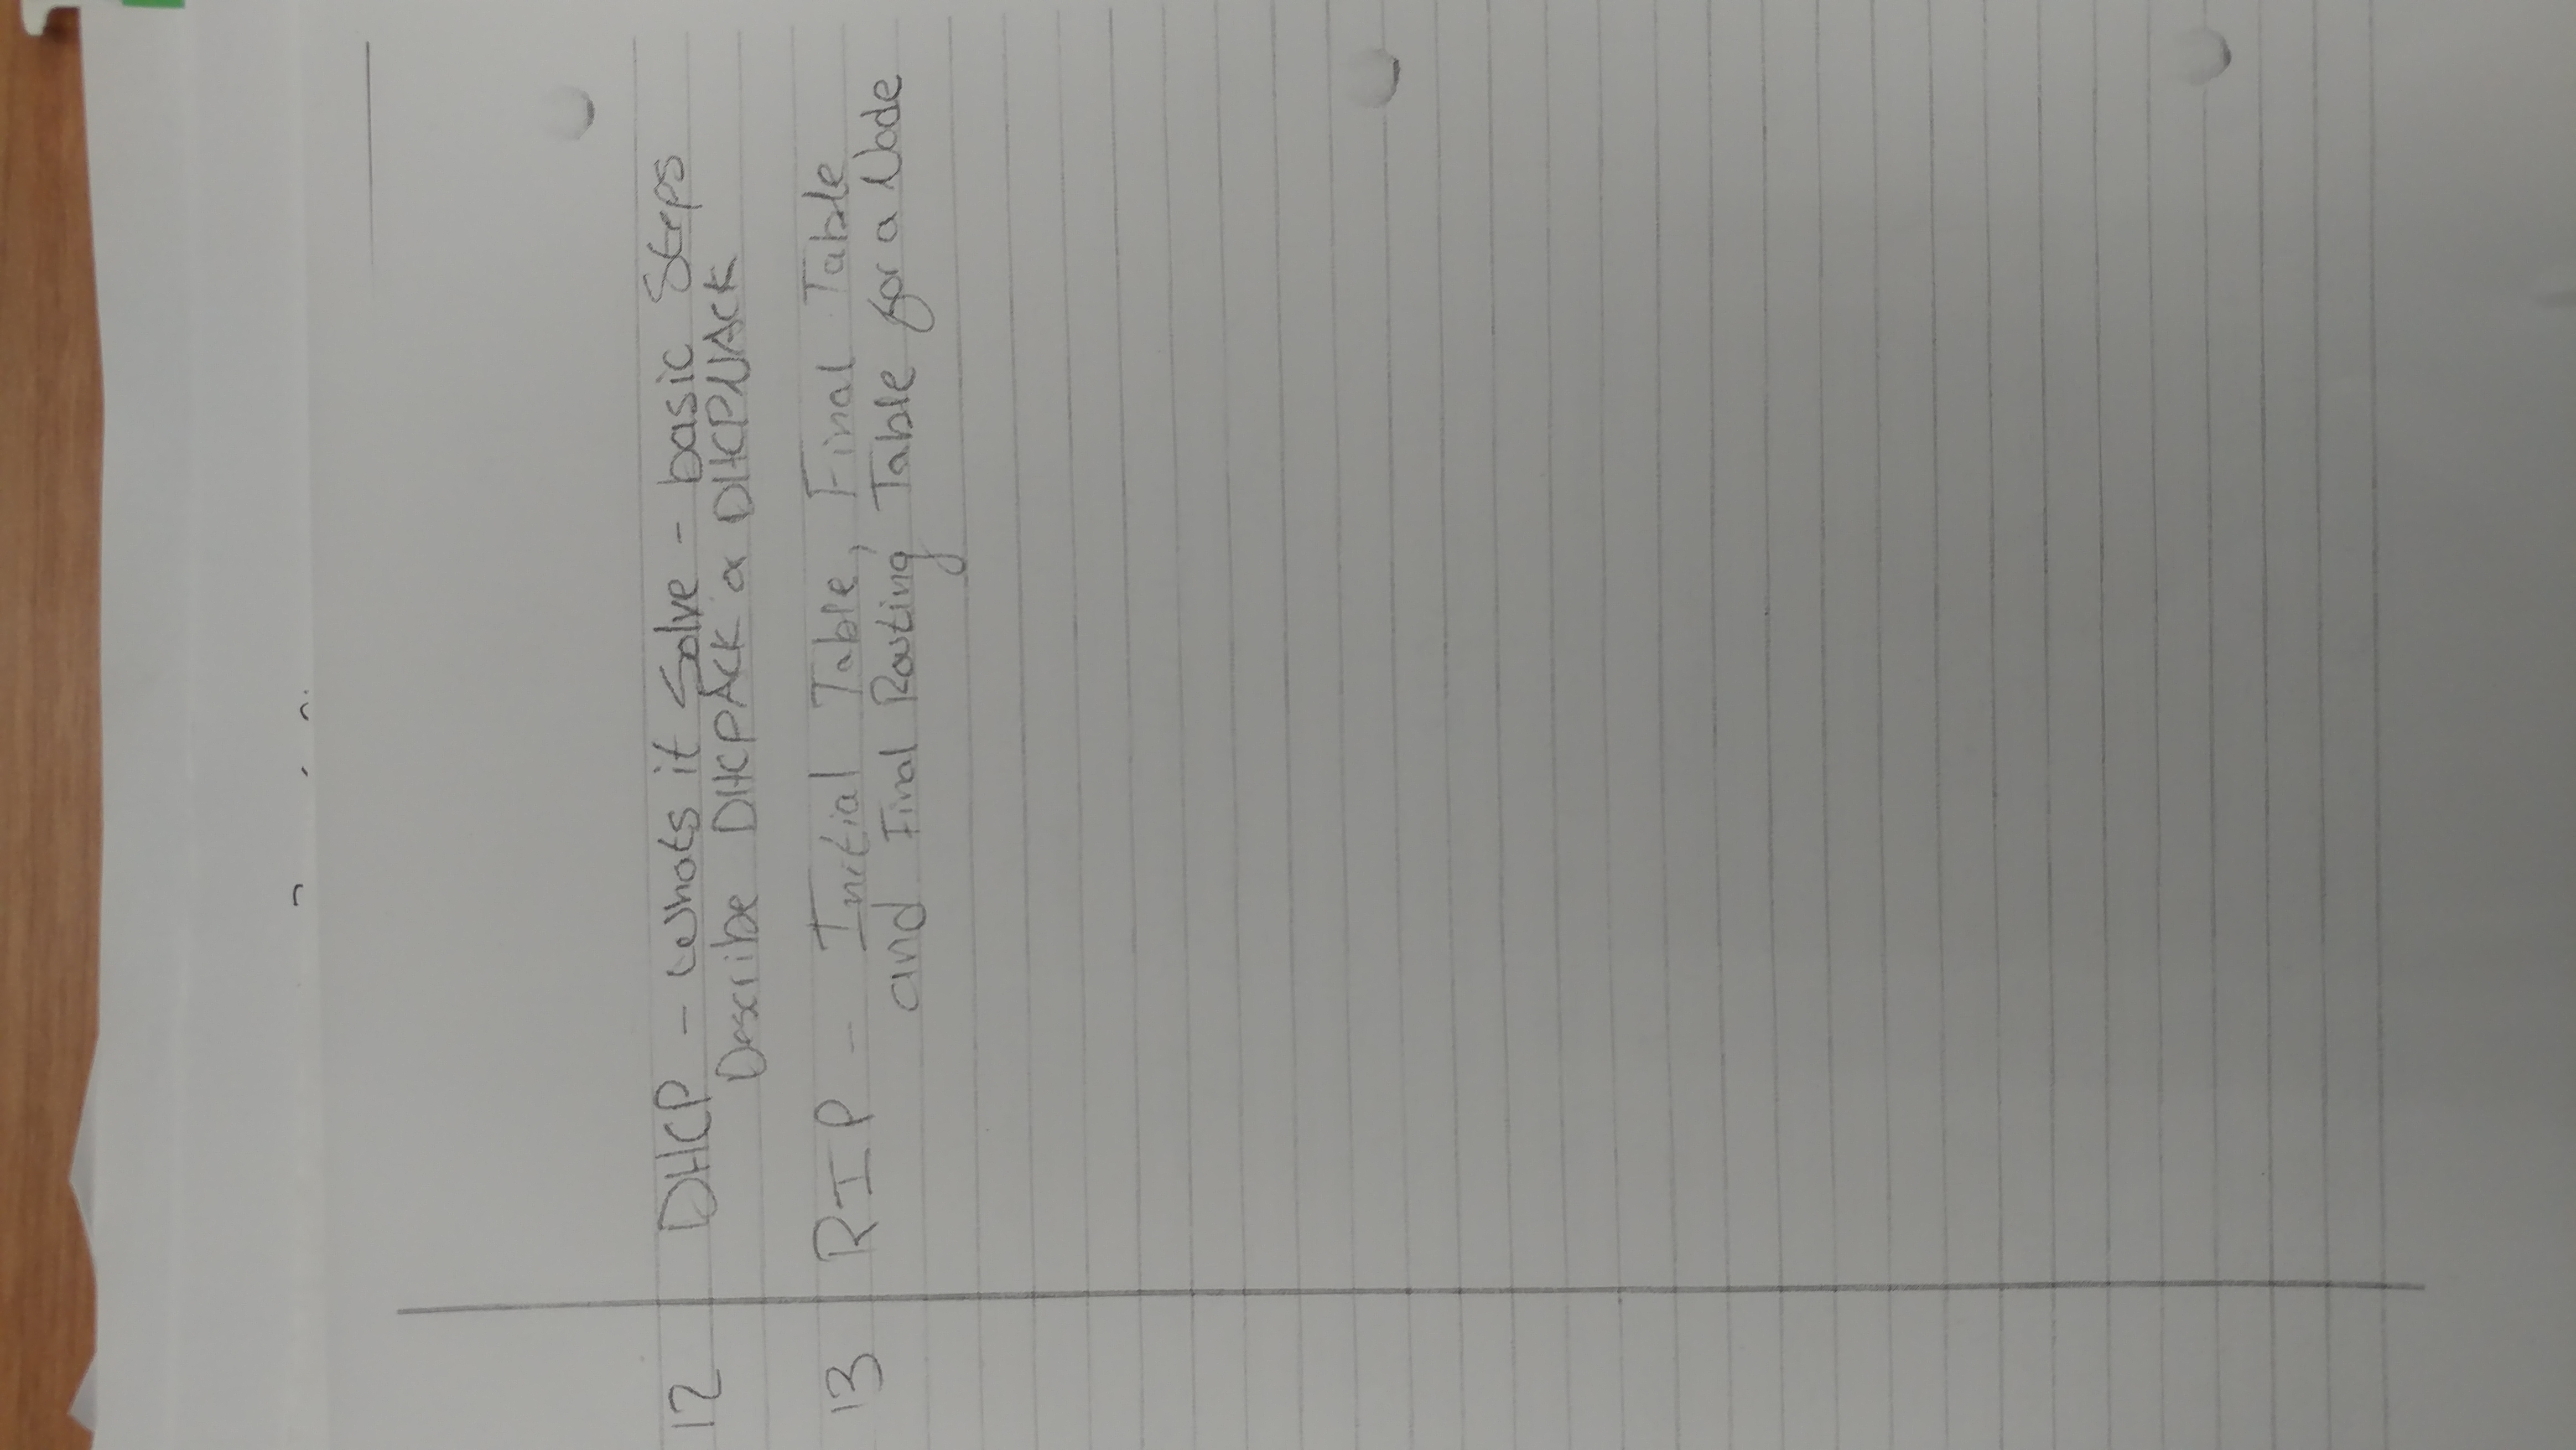 12 DHCP - Whats it Solve - basic Steps
Describe DHCPACK & DHCPNACK
13 RIP - Initial Table, Final Table
and Final Routing Table for a Node